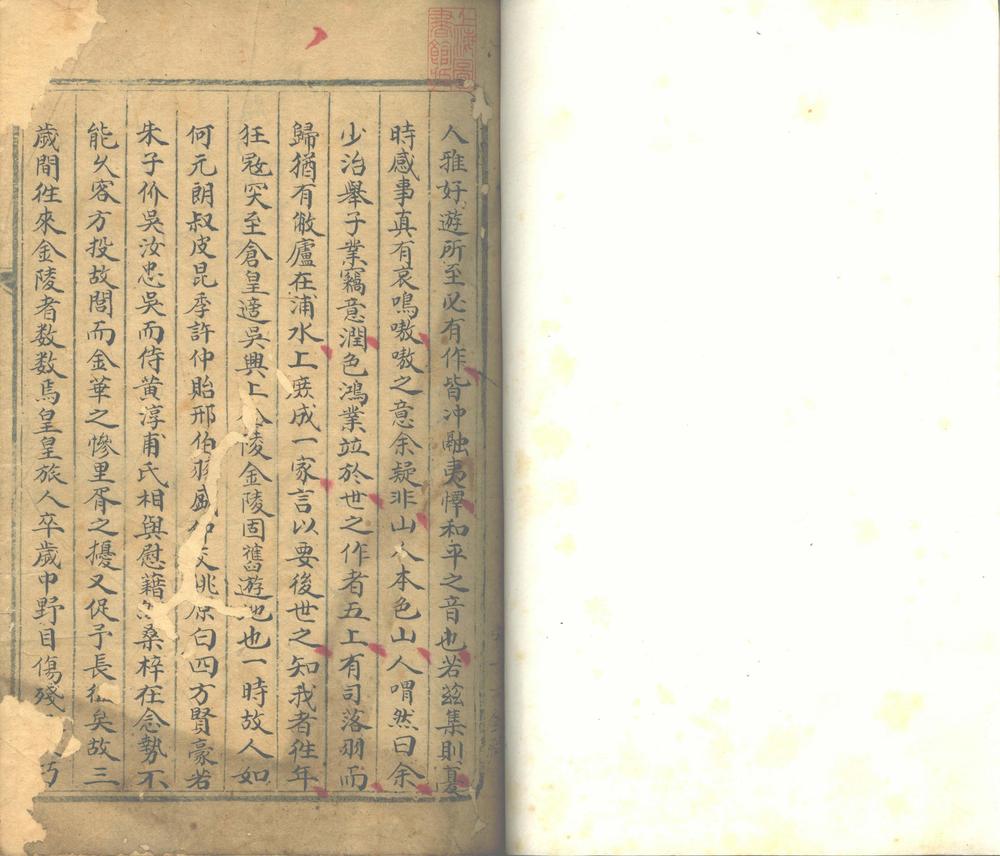 人雅好遊所至必有作皆冲融夷懌和平之音也若茲集則戞
時感事真有哀鳴嗷嗷之意余疑非山人本色山人喟然曰余
少治舉子業竊意潤色鴻業竝於世之作者五上有司落羽而
歸猶有敝廬在浦水上庶成一家言以要後世之知我者徃年
狂冦突至倉皇適吳興上金陵金陵固舊遊地也一時故人如
何元朗叔皮昆季許仲貽邢伯羽盛仲交姚原白四方賢豪若
朱子价吳汝忠吳而待黄淳甫氏相與慰藉桑梓在念勢不
能久客方投故閭而金華之慘里胥之擾又促予長征矣故三
歲間徃來金陵者数数焉皇皇旅人卒歲中野目傷殘朽
上海圖書館藏